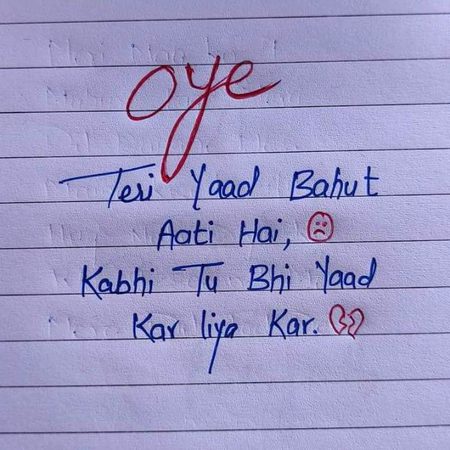 Oye
Teri Yaad Bahut
Aati Hai, ☹
Kabhi Tu Bhi Yaad
Kar liya Kar. 💔